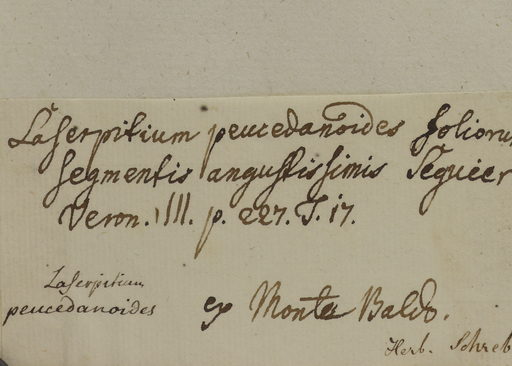 Laserpitium peucedanoides foliorum
segmentis angustissimis Seguier
Veron. III. p. 227. T. 17.
Laserpitium
peucedanoides
ex Monte Baldo.
Herb. Schreb